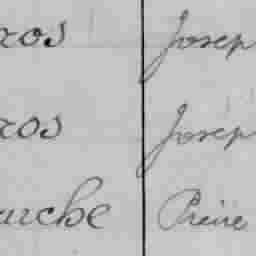 ros Josep
ros Josep
arche Preire